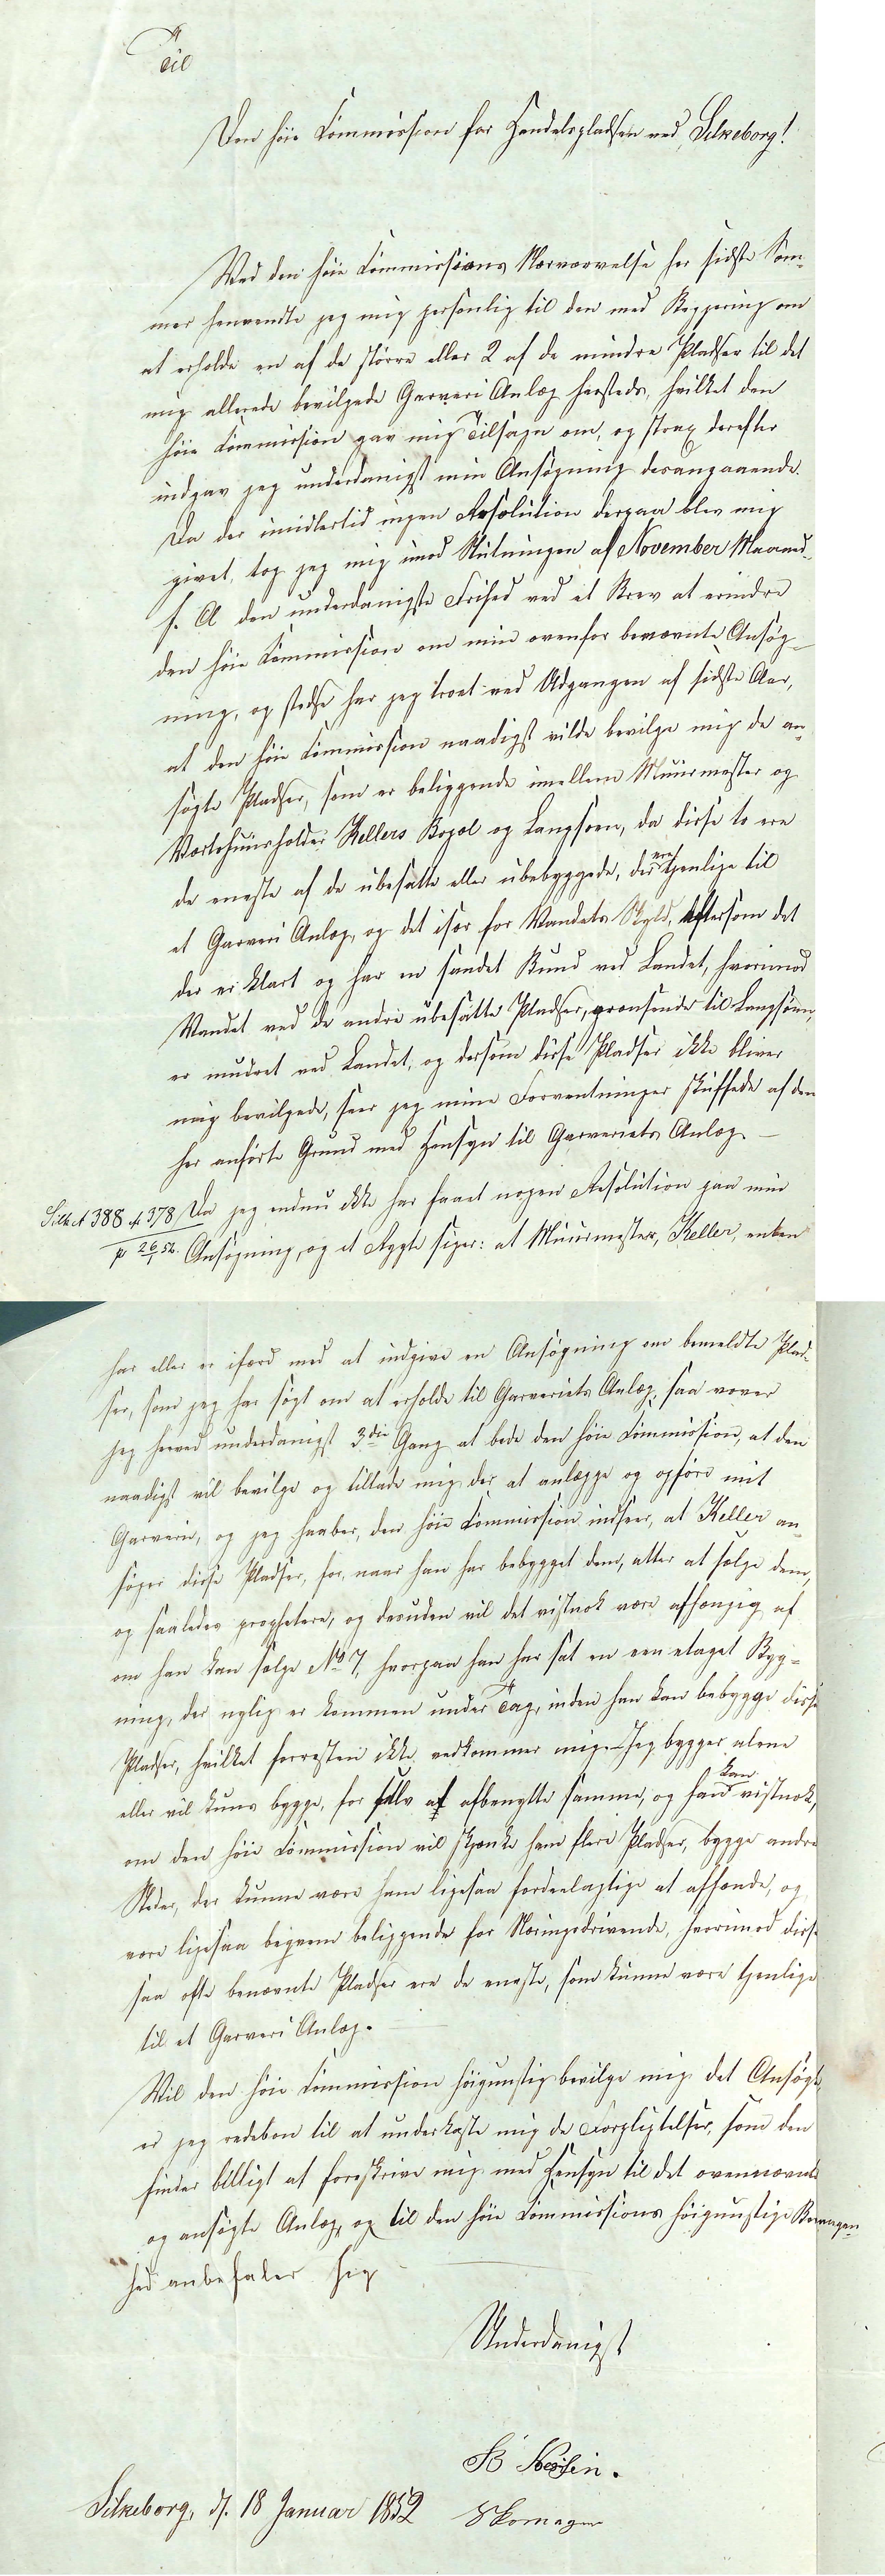 Til
Den høie Commission for Handelspladsen ved Silkeborg!
Wed den høie Commissions Nærværelse her sidste Som-
mer henvendte jeg mig personlig til den med Begjering om
at erholde en af de større eller 2 af de mindre Pladser til det
mig allerede bevilgede Garveri Anlæg hersteds, hvilket den
høie Commission gav mig Tilsagn om, og strax derefter
indgav jeg underdanigst min Ansøgning desangaaende.
Da der imidlertid ingen Resolution derpaa blev mig
givet, tog jeg mig imod Slutningen af November Maaned
f. A den underdanigste Frihed ved et Brev at erindre
den høie Commission om min ovenfor benævnte Ansøg-
ning, og stedse har jeg troet ved Udgangen af sidste Aar,
at den høie Commission naadigst vilde bevilge mig de an-
søgte Pladser, som er beliggende imellem Muurmester og
Værtshuusholder Kellers Bopæl og Langsøen, da disse to ere
de eneste af de ubesatte eller ubebyggede, der ere tjenlige til
et Garveri Anlæg, og det især for Wandets Skyld, eftersom det
der er klart og har en sandet Bund ved Landet, hvorimod
Wandet ved de andre ubesatte Pladser, grænsende til Langsøen,
er mudret ved Landet, og dersom disse Pladser ikke bliver
mig bevilgede, seer jeg mine Forventninger skuffede af den
her anførte Grund med Hensyn til Garveriets Anlæg. —
Silk A 388 A 378 Da jeg endnu ikke har faaet nogen Resolution paa min
pr 26/1 52. Ansøgning, og et Rygte siger: at Muurmester, Keller, enten
har eller er ifærd med at indgive en Ansøgning om bemeldte Plad-
ser, som jeg har søgt om at erholde til Garveriets Anlæg, saa vover
jeg herved underdanigst 3die Gang at bede den høie Commission, at den
naadigst vil bevilge og tillade mig der at anlægge og opføre mit
Garverie, og jeg haaber, den høie Commission indseer, at Keller an-
søger disse Pladser, for, naar han har bebygget dem, atter at sælge dem,
og saaledes prophetere, og desuden vil det vistnok være afhængig af
om han kan sælge No 7, hvorpaa han har sat en een etaget Byg-
ning, der nylig er kommen under Tag, inden han kan bebygge disse
Pladser, hvilket forresten ikke vedkommer mig. Jeg bygger alene
eller vil kuns bygge, for selv at afbenytte samme, og han kan vistnok,
om den høie Commission vil skjænke ham flere Pladser, bygge andre
Steder, der kunne være ham ligesaa fordeelagtige at afhænde, og
være ligesaa beqvem beliggende for Næringsdrivende, hvorimod disse
saa ofte benævnte Pladser ere de eneste, som kunne være tjenlige
til et Garveri Anlæg.
Wil den høie Commission høigunstig bevilge mig det Ansøgte,
er jeg redebon til at underkaste mig de Forpligtelser, som den
finder billigt at foreskrive mig med Hensyn til det ovennævnte
og ansøgte Anlæg, og til den høie Commissions høigunstige Bevaagen-
hed anbefaler sig
Underdanigst
Silkeborg, d. 18 Januar 1852
Skomager